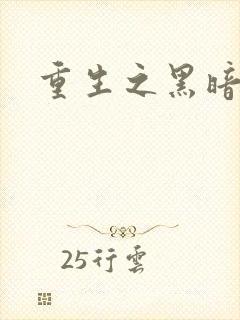 重生之黑暗
25行雲